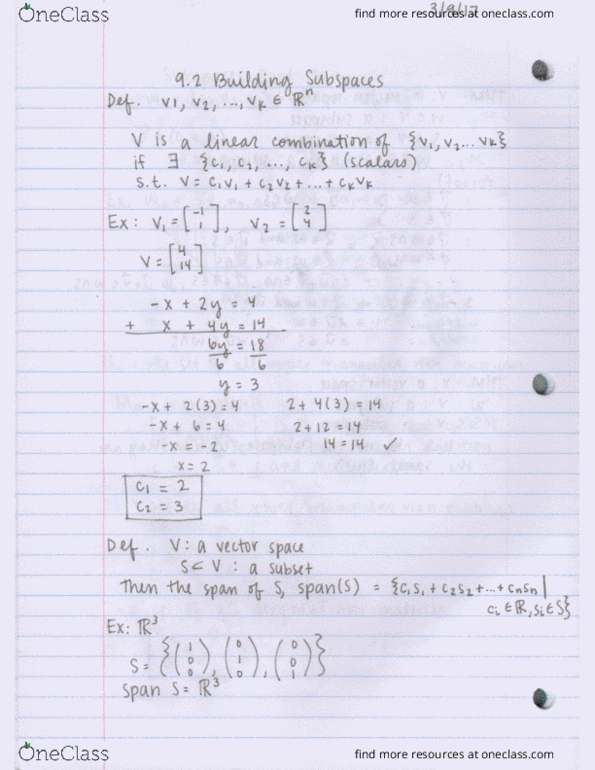 OneClass
find more resources at oneclass.com
3/9/17
9.2 Building Subspaces
Def. v1, v2, ..., vk ∈ ℝⁿ
V is a linear combination of {v1, v2... vk}
if ∃ {c1, c2, ..., ck} (scalars)
s.t. V = c1v1 + c2v2 + ... + ckvk
Ex: V1 = [-1 1], V2 = [2 4]
V = [4 14]
-x + 2y = 4
+ x + 4y = 14
6y = 18
6 6
y = 3
-x + 2(3) = 4 2 + 4(3) = 14
-x + 6 = 4 2 + 12 = 14
-x = -2 14 = 14 ✓
x = 2
C1 = 2
C2 = 3
Def. V: a vector space
S ⊂ V : a subset
Then the span of S, span(S) = {c1s1 + c2s2 + ... + cnsn |
ci ∈ ℝ, si ∈ S}
Ex: ℝ³
S = {(1 0 0), (0 1 0), (0 0 1)}
span S = ℝ³
OneClass
find more resources at oneclass.com